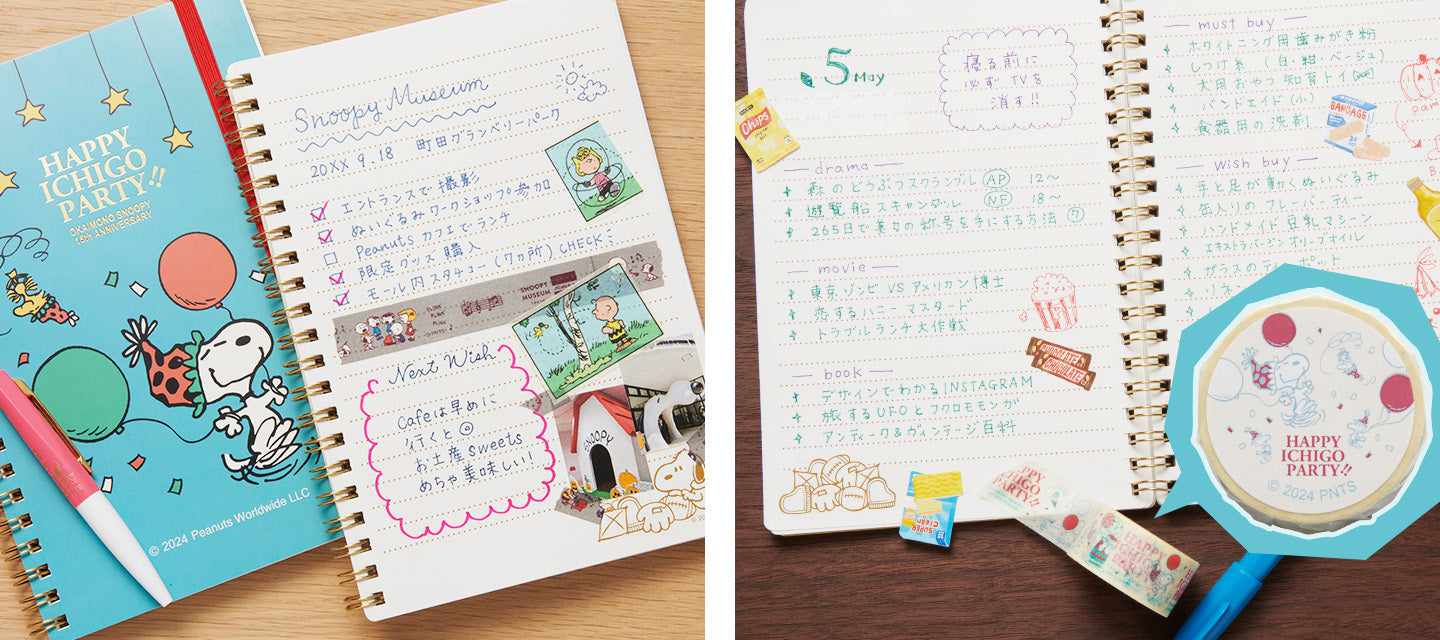 HAPPY
ICHIGO
PARTY!!
OKAIMONO SNOOPY
15th ANNIVERSARY
© 2024 Peanuts Worldwide LLC
Snoopy Museum
20XX 9.18 町田グランベリーパーク
エントランスで撮影
ぬいぐるみワークショップ参加
Peanuts カフェでランチ
限定グッズ購入
モール内スタチュー(7ヵ所)CHECK
SNOOPY
MUSEUM
Next Wish
Cafeは早めに
行くと◎
お土産sweets
めちゃ美味しい!
SNOOPY
5 May
寝る前に
必ずTVを
消す!!
Chips
drama
森のどうぶつスクランブル AP 12〜
遊覧船スキャンダル NF 18〜
265日で魔女の称号を手にする方法 ⑦
movie
東京ゾンビ VS アメリカン博士
恋するハニーマスタード
トラブルランチ大作戦
CHOCOLATE
CHOCOLATE
book
デザインでわかるINSTAGRAM
旅するUFOとフクロモモンガ
アンティーク&ヴィンテージ百科
SUPER
Clean
must buy
ホワイトニング用歯みがき粉
しつけ糸 (白・紺・ベージュ)
犬用おやつ知育トイ
バンドエイド(小)
食器用の洗剤
BANDAGE
wish buy
手と足が動くぬいぐるみ
缶入りのフレーバーティー
ハンドメイド豆乳マシーン
エキストラバージンオリーブオイル
ガラスのティーポット
HAPPY
ICHIGO
PARTY!!
HAPPY
ICHIGO
PARTY!!
HAPPY
ICHIGO
PARTY!!
© 2024 PNTS